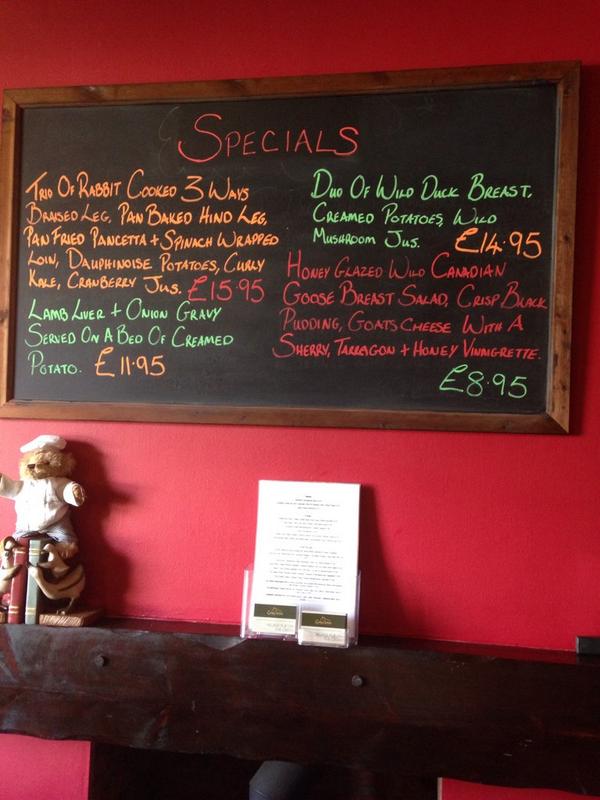 SPECIALS
TRIO OF RABBIT COOKED 3 WAYS
BRAISED LEG, PAN BAKED HIND LEG,
PAN FRIED PANCETTA + SPINACH WRAPPED
LOIN, DAUPHINOISE POTATOES, CURLY
KALE, CRANBERRY JUS. £15.95
LAMB LIVER + ONION GRAVY
SERVED ON A BED OF CREAMED
POTATO. £11.95
DUO OF WILD DUCK BREAST,
CREAMED POTATOES, WILD
MUSHROOM JUS. £14.95
HONEY GLAZED WILD CANADIAN
GOOSE BREAST SALAD, CRISP BLACK
PUDDING, GOATS CHEESE WITH A
SHERRY, TARRAGON + HONEY VINNIGRETTE.
£8.95